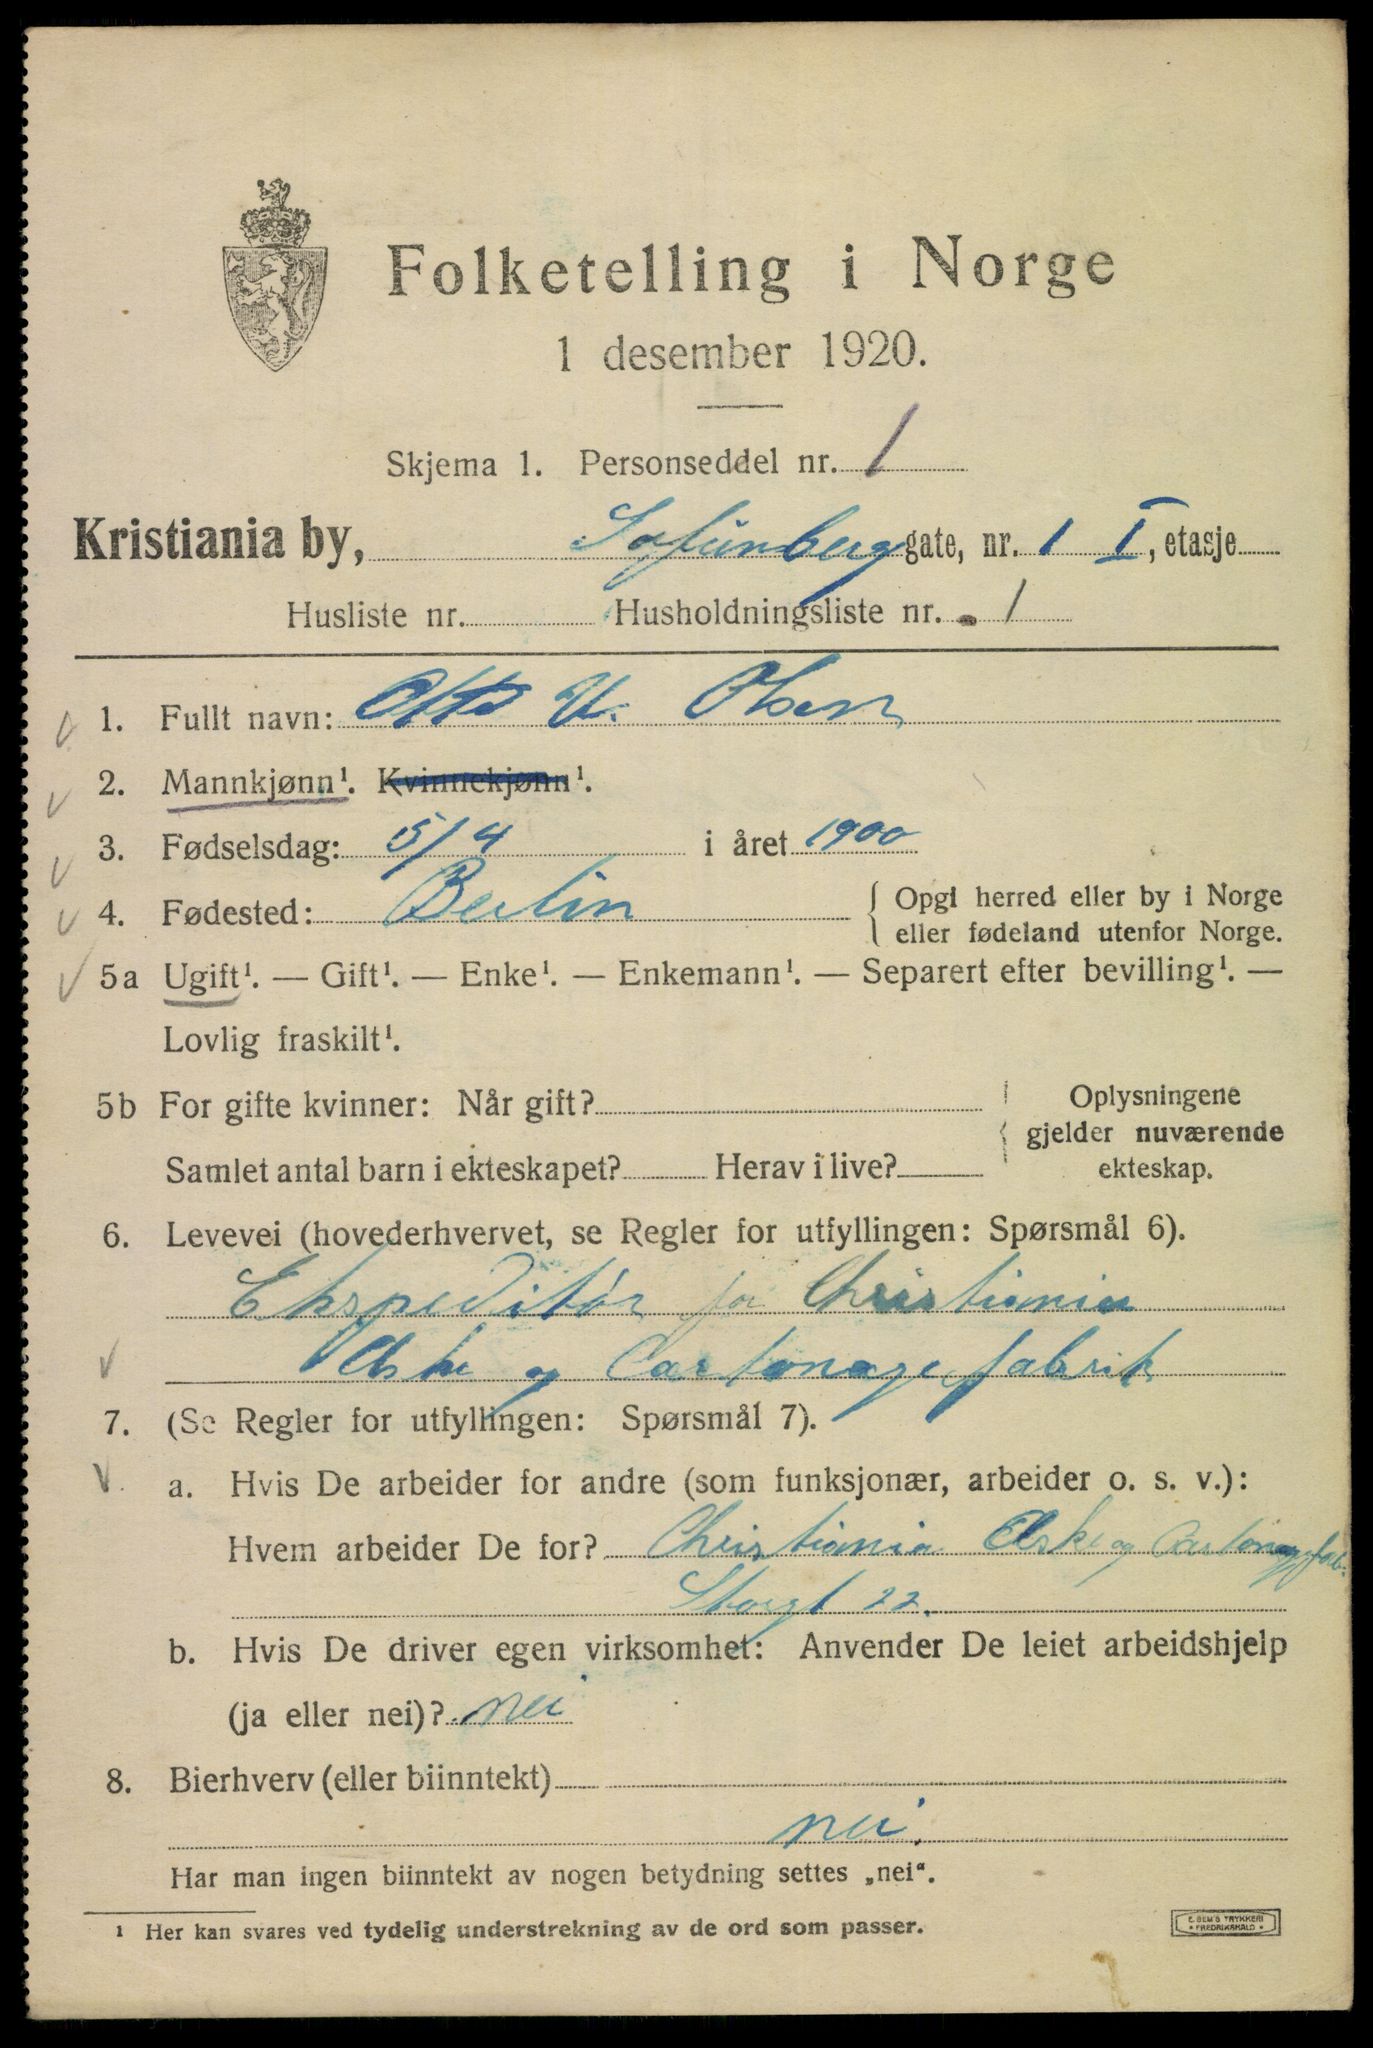 Folketelling i Norge
1 desember 1920.
Skjema 1. Personseddel nr. 1
Kristiania by, Sofienberg gate, nr. 1 I, etasje
Husliste nr. Husholdningsliste nr. 1
1. Fullt navn: Otto V. Olsen
2. Mannkjønn¹. Kvinnekjønn¹.
3. Fødselsdag: 5/4 i året 1900
4. Fødested: Berlin { Opgi herred eller by i Norge
eller fødeland utenfor Norge.
5a Ugift¹. — Gift¹. — Enke¹. — Enkemann¹. — Separert efter bevilling¹. —
Lovlig fraskilt¹.
5b For gifte kvinner: Når gift? Oplysningene
gjelder nuværende
Samlet antal barn i ekteskapet? Herav i live? ekteskap.
6. Levevei (hovederhvervet, se Regler for utfyllingen: Spørsmål 6).
Ekspeditør for Christiania
Æske og Cartonagefabrik
7. (Se Regler for utfyllingen: Spørsmål 7).
a. Hvis De arbeider for andre (som funksjonær, arbeider o. s. v.):
Hvem arbeider De for? Christiania Æske og Cartonagefab.
Storgt 22.
b. Hvis De driver egen virksomhet: Anvender De leiet arbeidshjelp
(ja eller nei)? nei
8. Bierhverv (eller biinntekt)
nei.
Har man ingen biinntekt av nogen betydning settes „nei“.
¹ Her kan svares ved tydelig understrekning av de ord som passer.
E. SEM'S TRYKKERI
• FREDRIKSHALD •